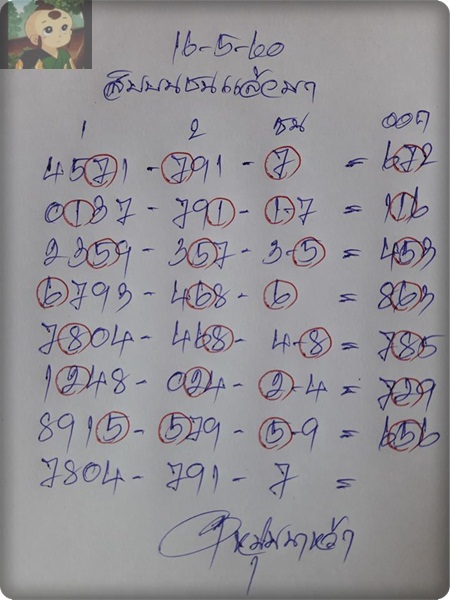 16-5-60
สิบบนชนแล้วมา
1 2 ชน ออก
4571 - 791 - 7 = 672
0137 - 791 - 1-7 = 116
2359 - 357 - 3-5 = 453
6793 - 468 - 6 = 863
7804 - 468 - 4-8 = 785
1248 - 024 - 2-4 = 729
8915 - 579 - 5-9 = 656
7804 - 791 - 7 =
หนุ่มนาหว้า